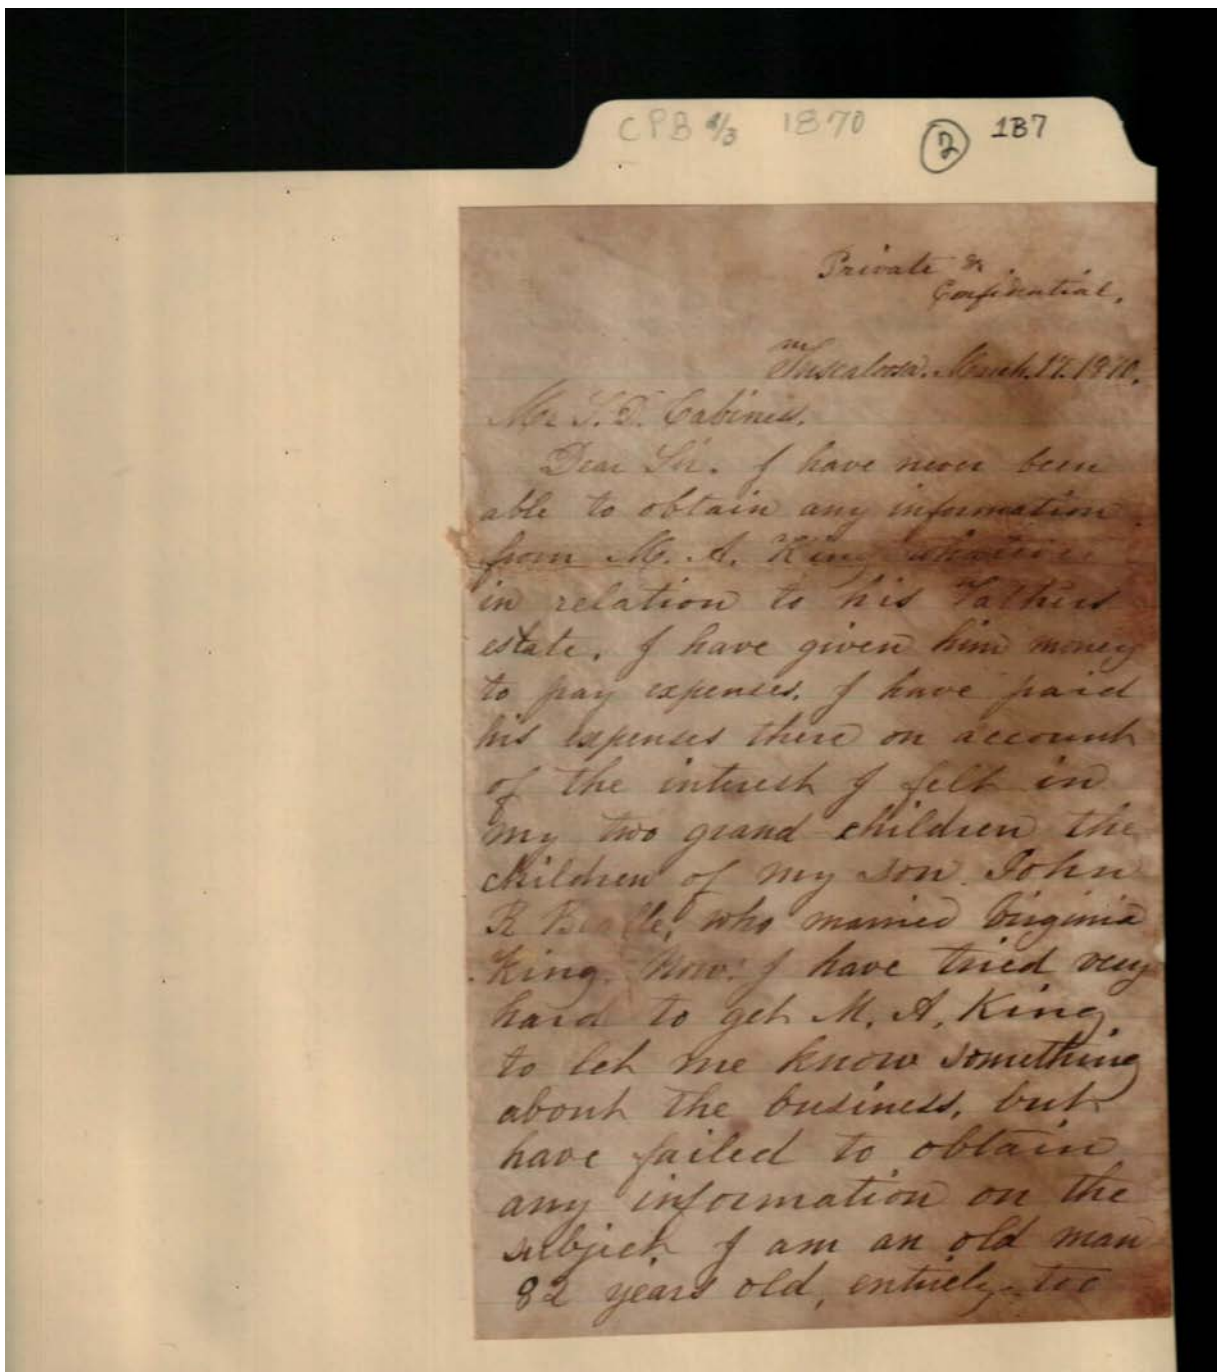 CPB 2/3 1870 2 1B7
Private &
Confidential.
Tuscaloosa. March. 17. 1870.
Mr S. D. Cabiness.
Dear Sir. I have never been
able to obtain any information
from M. A. King whatever
in relation to his Fathers
estate. I have given him money
to pay expenses. I have paid
his expenses there on account
of the interest I felt in
my two grand children the
children of my son John
R who married Virginia
King. Now. I have tried very
hard to get M. A. King
to let me know something
about the business, but
have failed to obtain
any information on the
subject. I am an old man
82 years old, entirely too